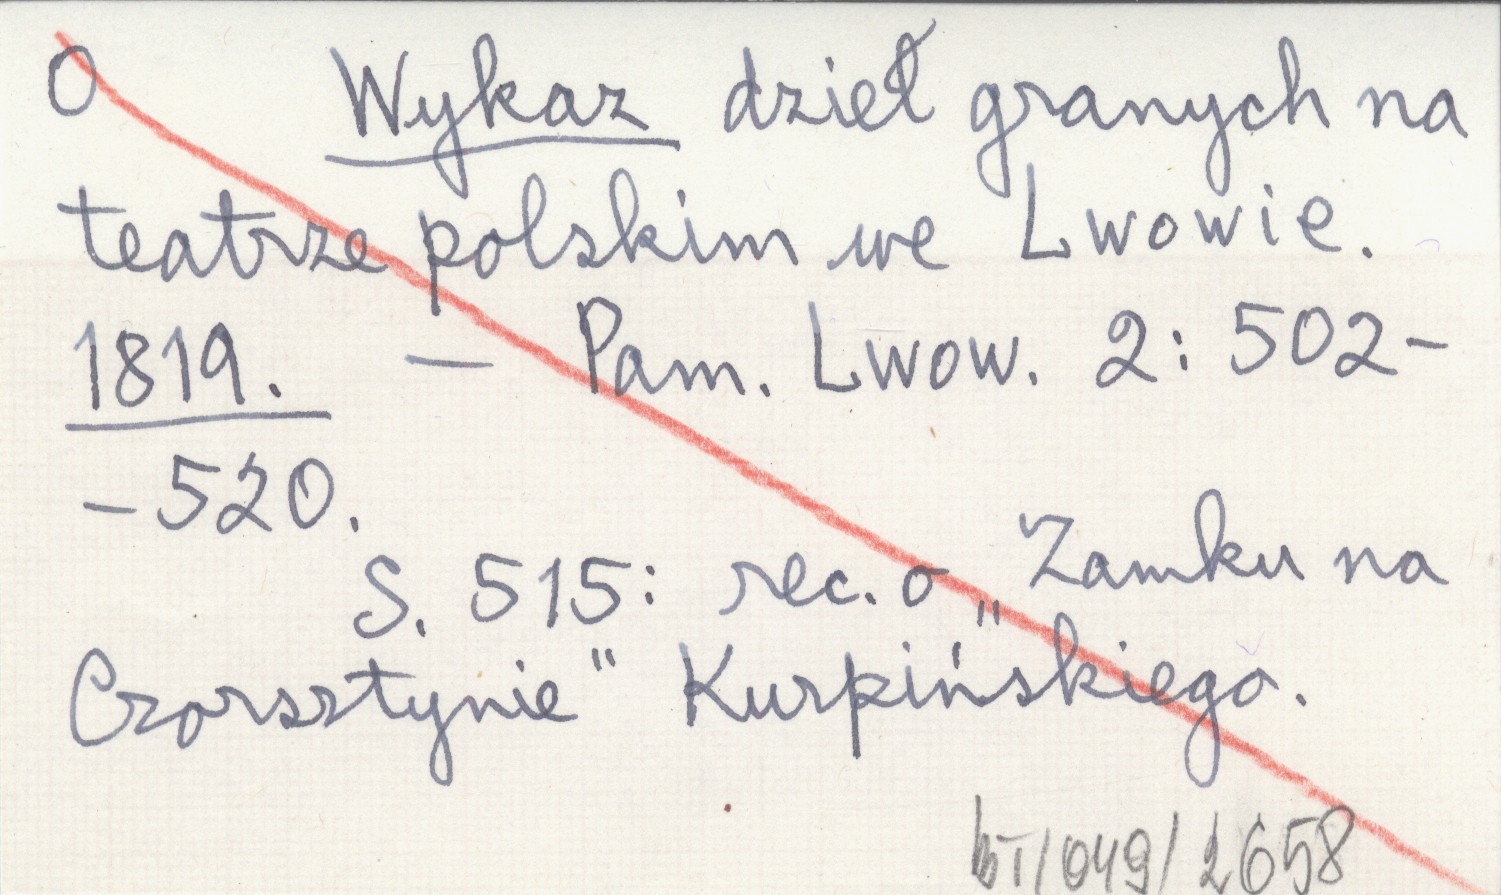 O Wykaz dzieł granych na
teatrze polskim we Lwowie.
1819. — Pam. Lwow. 2: 502-
-520.
S. 515: rec. o „Zamku na
Czorsztynie" Kurpińskiego.
bT/049/2658